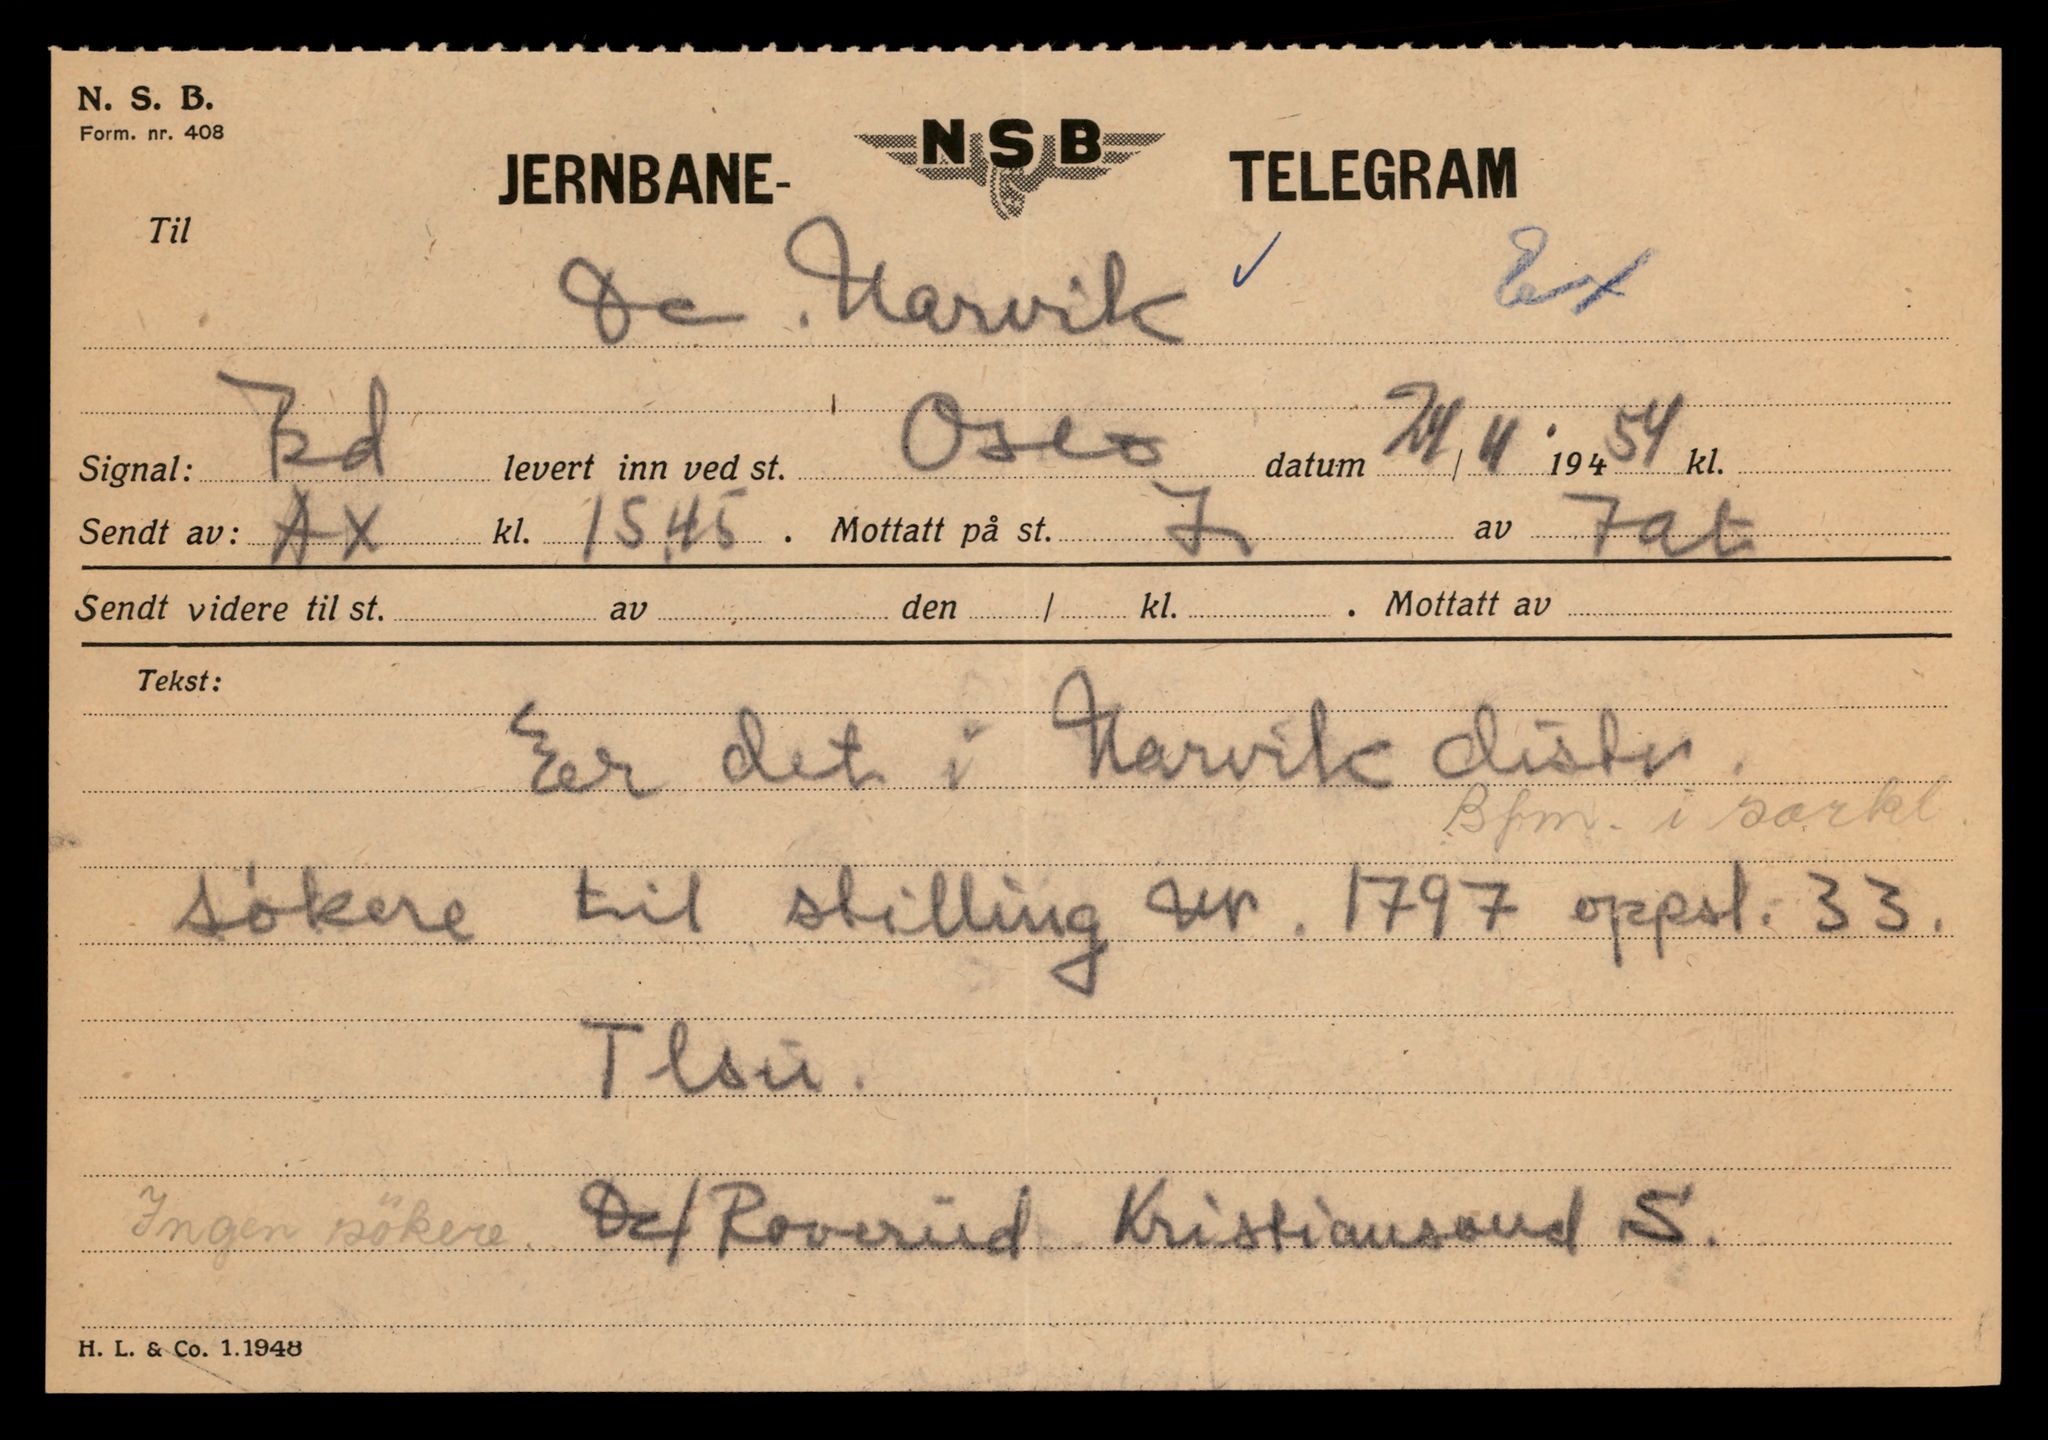 N. S. B.
Form. nr. 408
JERNBANE- NSB TELEGRAM
Til
Dc. Narvik ✓
Signal: levert inn ved st. Oslo datum 24/11 194 54 kl.
Sendt av: AX kl. 15.45. Mottatt på st. av
Sendt videre til st. av den / kl. . Mottatt av
Tekst:
Er det i Narvik distr.
Bfm. i særkl.
søkere til stilling nr. 1797 oppsl. 33.
Tlsv.
Ingen søkere. Dc/Roverud Kristiansand S.
H. L. & Co. 1.1948